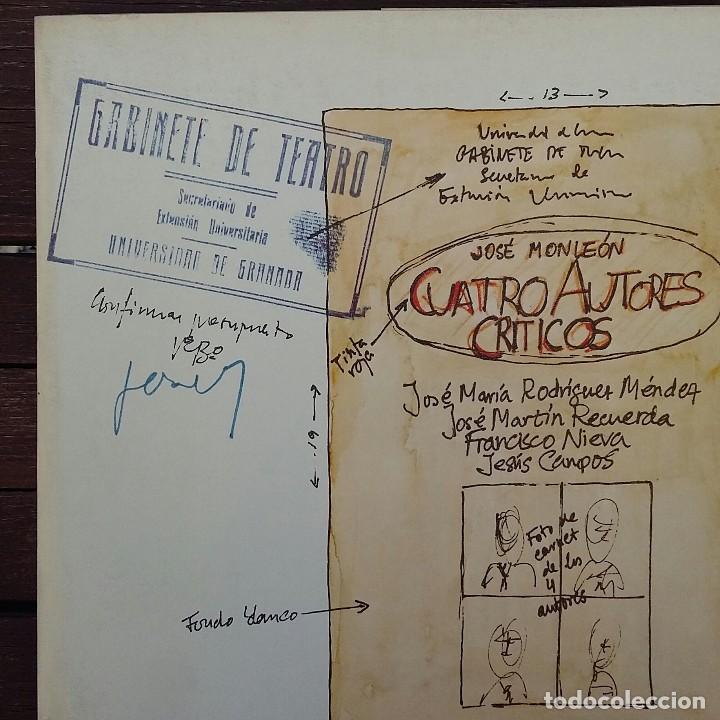 GABINETE DE TEATRO
Secretariado de
Extensión Universitaria
UNIVERSIDAD DE GRANADA
Confirmar presupuesto
VºBº
13
GABINETE DE
de
Extensión
JOSÉ MONLEÓN
CUATRO AUTORES
CRITICOS
Tinta
roja
José María Rodríguez Méndez
José Martín Recuerda
Francisco Nieva
Jesús Campos
19
Foto de
carnet
de los
4
autores
Fondo blanco
todocoleccion